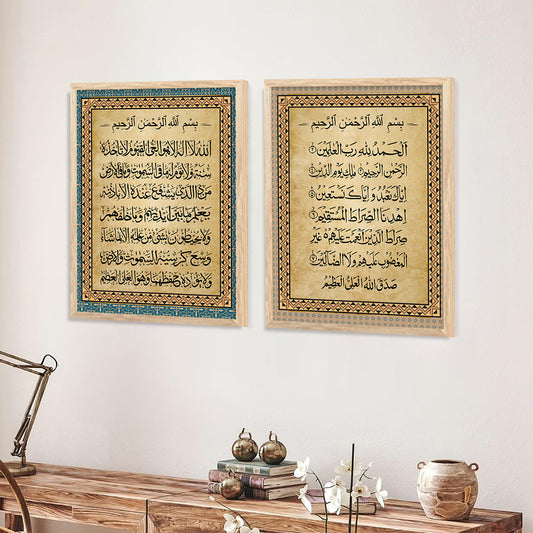 بِسْمِ اللهِ الرَّحْمٰنِ الرَّحِيمِ
اللهُ لا اله الا هو الحي القيوم لا تاخذه
سنة ولا نوم له ما في السموت وما في الارض
من ذا الذي يشفع عنده الا باذنه
يعلم ما بين ايديهم وما خلفهم
ولا يحيطون بشيء من علمه الا بما شاء
وسع كرسيه السموت والارض
ولا يؤده حفظهما وهو العلي العظيم
بِسْمِ اللهِ الرَّحْمٰنِ الرَّحِيمِ
الحمد لله رب العلمين ١
الرحمن الرحيم ٢ ملك يوم الدين ٣
اياك نعبد و اياك نستعين ٤
اهدنا الصراط المستقيم ٥
صراط الذين انعمت عليهم غير
المغضوب عليهم ولا الضالين
صدق الله العلي العظيم